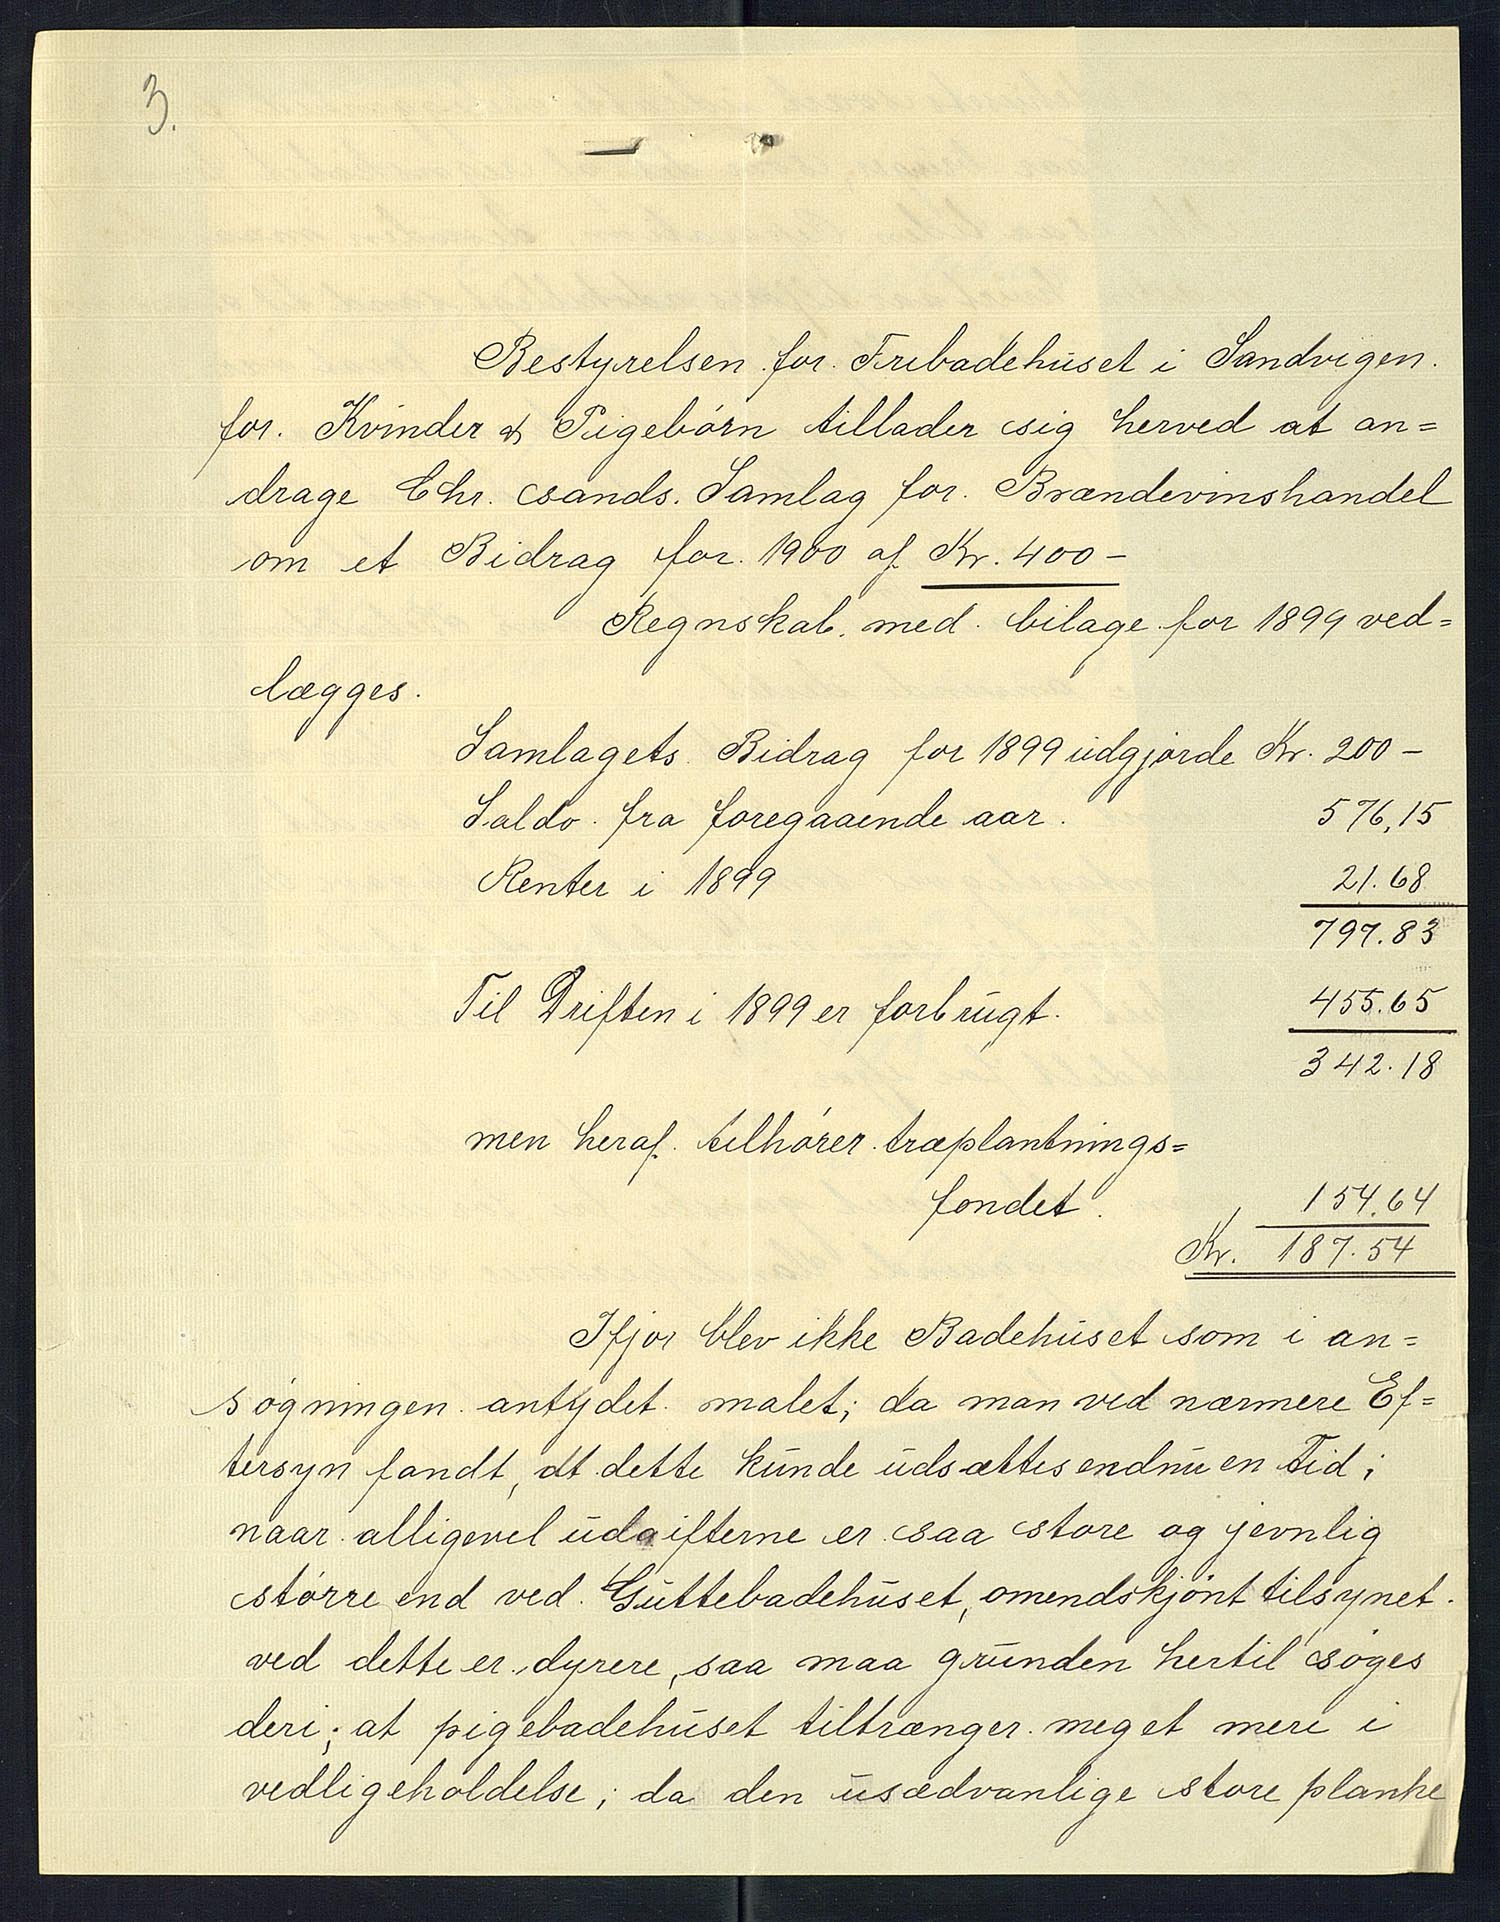 3.
Bestyrelsen for Fribadehuset i Sandvigen
for Kvinder & Pigebørn tillader sig herved at an=
drage Chr.sands. Samlag for Brændevinshandel
om et Bidrag for 1900 af Kr. 400 –
Regnskab med bilage for 1899 ved=
lægges.
Samlagets Bidrag for 1899 udgjorde Kr. 200 –
Saldo fra foregaaende aar. 576,15
Renter i 1899 21.68
797.83
Til Driften i 1899 er forbrugt. 455.65
342.18
men heraf tilhører træplantnings=
fondet. 154.64
Kr. 187.54
Ifjor blev ikke Badehuset som i an=
søgningen antydet malet; da man ved nærmere Ef=
tersyn fandt, at dette kunde udsættes endnu en Tid;
naar alligevel udgifterne er saa store og jevnlig
større end ved Guttebadehuset, omendskjønt tilsynet
ved dette er dyrere, saa maa grunden hertil søges
deri; at pigebadehuset tiltrænger meget mere i
vedligeholdelse; da den usædvanlige store planke